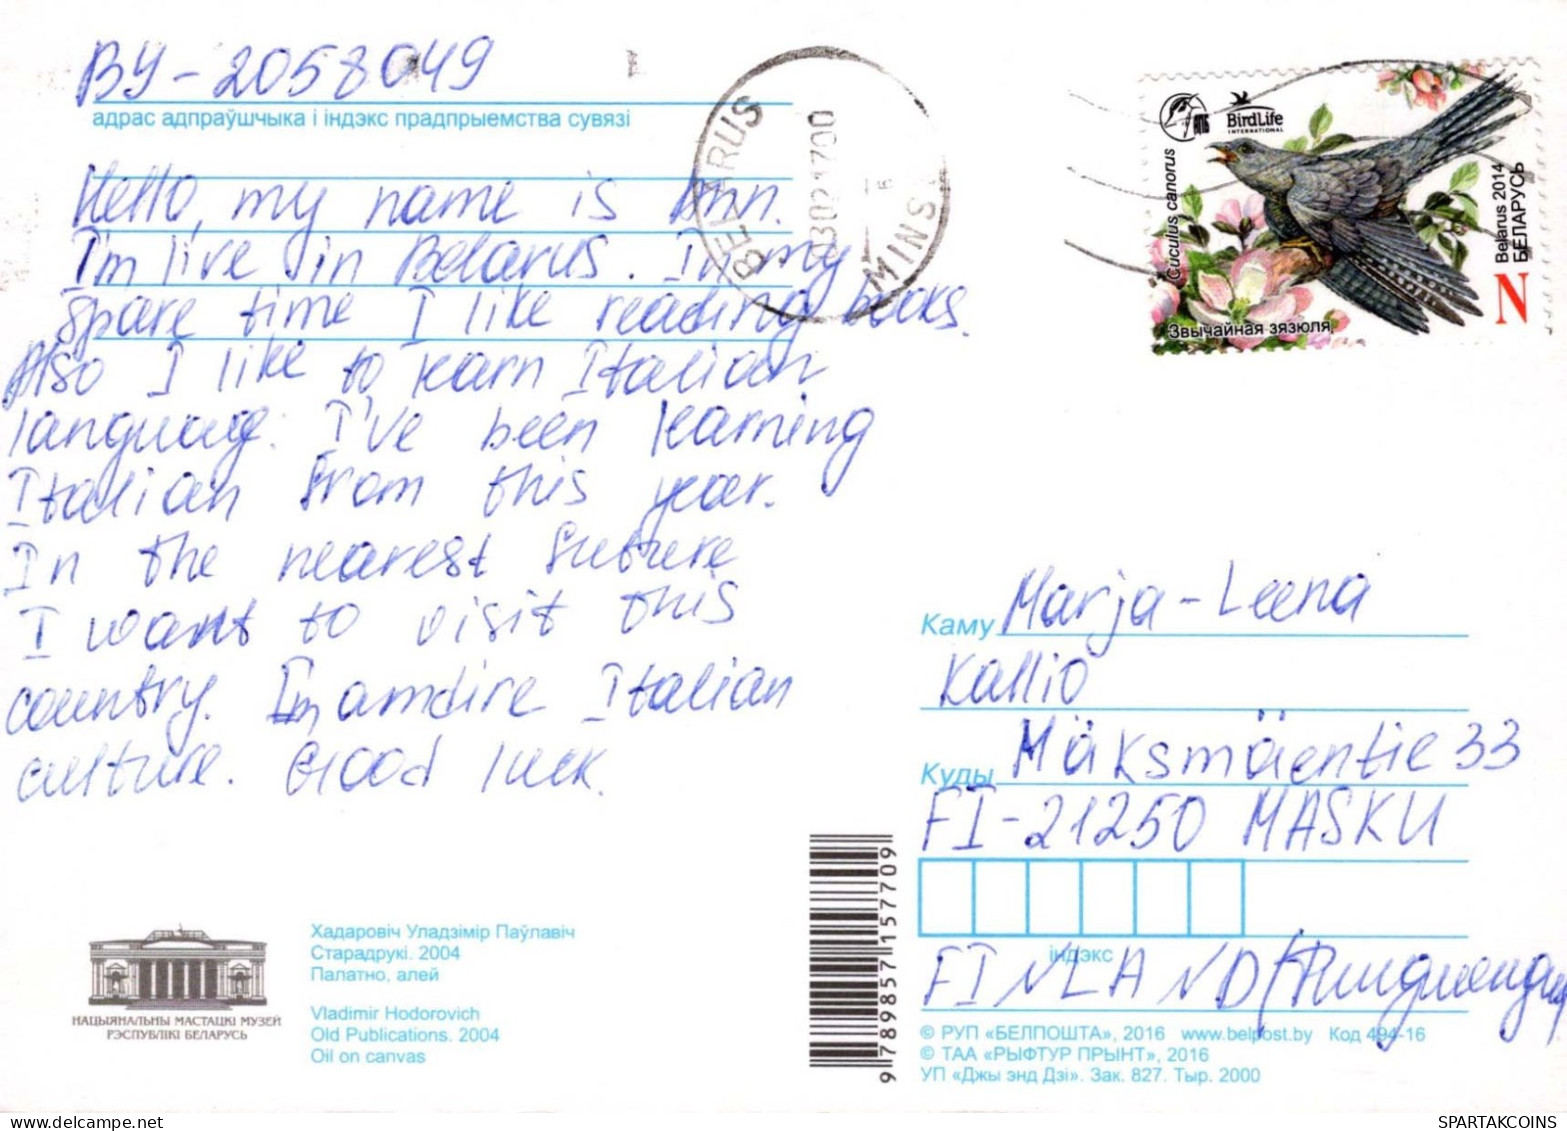 BY-2058049
адрас адпраўшчыка і індэкс прадпрыемства сувязі
Hello, my name is Ann.
I'm live in Belarus. In my
spare time I like reading books.
Also I like to learn Italian
language. I've been learning
Italian from this year.
In the nearest future
I want to visit this
country. I'm amdire Italian
culture. Good luck.
BELARUS
MINS
BirdLife
INTERNATIONAL
Cuculus canorus
Звычайная зязюля
Belarus 2014
БЕЛАРУСЬ
N
Каму Marja-Leena
Kallio
Куды Mäksmäentie 33
FI-21250 MASKU
індэкс
FINLAND
© РУП «БЕЛПОШТА», 2016 www.belpost.by Код 494-16
© ТАА «РЫФТУР ПРЫНТ», 2016
УП «Джы энд Дзі». Зак. 827. Тыр. 2000
9 789857 157709
НАЦЫЯНАЛЬНЫ МАСТАЦКІ МУЗЕЙ
РЭСПУБЛІКІ БЕЛАРУСЬ
Хадаровіч Уладзімір Паўлавіч
Старадрукі. 2004
Палатно, алей
Vladimir Hodorovich
Old Publications. 2004
Oil on canvas
SPARTAKCOINS